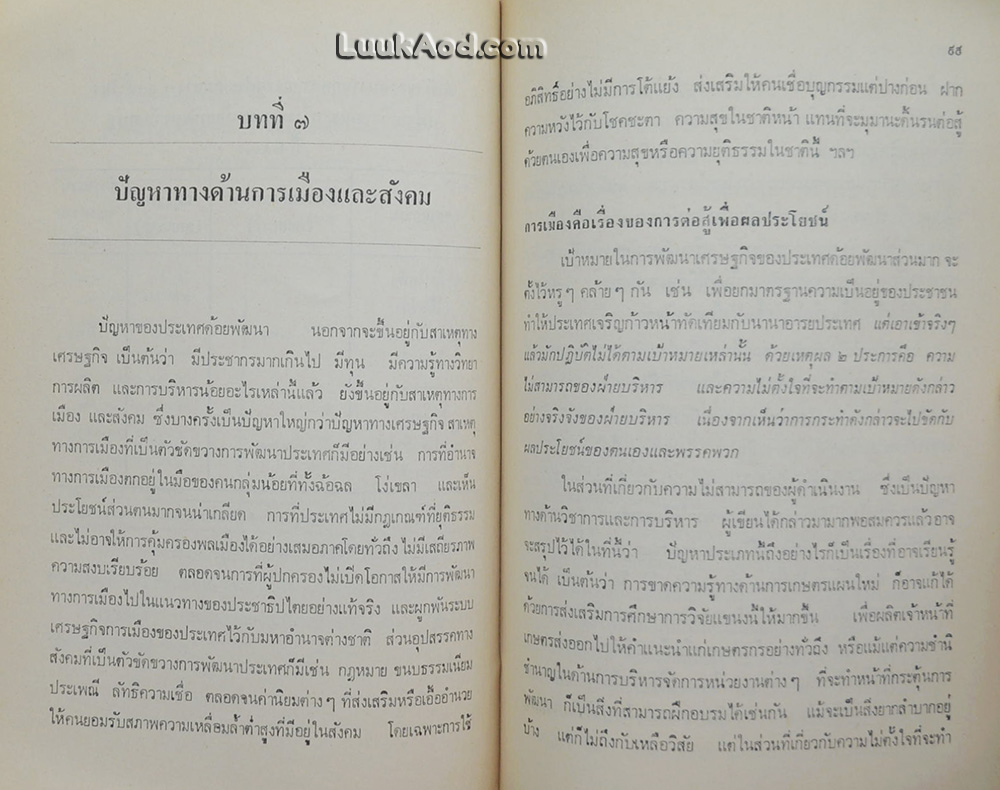 LuukAod.com
บทที่ ๗
ปัญหาทางด้านการเมืองและสังคม
ปัญหาของประเทศด้อยพัฒนา นอกจากจะขึ้นอยู่กับสาเหตุทาง
เศรษฐกิจ เป็นต้นว่า มีประชากรมากเกินไป มีทุน มีความรู้ทางวิทยา
การผลิต และการบริหารน้อยอะไรเหล่านี้แล้ว ยังขึ้นอยู่กับสาเหตุทางการ
เมือง และสังคม ซึ่งบางครั้งเป็นปัญหาใหญ่กว่าปัญหาทางเศรษฐกิจ สาเหตุ
ทางการเมืองที่เป็นตัวขัดขวางการพัฒนาประเทศก็มีอย่างเช่น การที่อำนาจ
ทางการเมืองตกอยู่ในมือของคนกลุ่มน้อยที่ทั้งฉ้อฉล โง่เขลา และเห็น
ประโยชน์ส่วนตนมากจนน่าเกลียด การที่ประเทศไม่มีกฎเกณฑ์ที่ยุติธรรม
และไม่อาจให้การคุ้มครองพลเมืองได้อย่างเสมอภาคโดยทั่วถึง ไม่มีเสถียรภาพ
ความสงบเรียบร้อย ตลอดจนการที่ผู้ปกครองไม่เปิดโอกาสให้มีการพัฒนา
ทางการเมืองไปในแนวทางของประชาธิปไตยอย่างแท้จริง และผูกพันระบบ
เศรษฐกิจการเมืองของประเทศไว้กับมหาอำนาจต่างชาติ ส่วนอุปสรรคทาง
สังคมที่เป็นตัวขัดขวางการพัฒนาประเทศก็มีเช่น กฎหมาย ขนบธรรมเนียม
ประเพณี ลัทธิความเชื่อ ตลอดจนค่านิยมต่างๆ ที่ส่งเสริมหรือเอื้ออำนวย
ให้คนยอมรับสภาพความเหลื่อมล้ำต่ำสูงที่มีอยู่ในสังคม โดยเฉพาะการใช้
๙๕
อภิสิทธิ์อย่างไม่มีการโต้แย้ง ส่งเสริมให้คนเชื่อบุญกรรมแต่ปางก่อน ฝาก
ความหวังไว้กับโชคชะตา ความสุขในชาติหน้า แทนที่จะมุมานะดิ้นรนต่อสู้
ด้วยตนเองเพื่อความสุขหรือความยุติธรรมในชาตินี้ ฯลฯ
การเมืองคือเรื่องของการต่อสู้เพื่อผลประโยชน์
เป้าหมายในการพัฒนาเศรษฐกิจของประเทศด้อยพัฒนาส่วนมาก จะ
ตั้งไว้หรูๆ คล้ายๆ กัน เช่น เพื่อยกมาตรฐานความเป็นอยู่ของประชาชน
ทำให้ประเทศเจริญก้าวหน้าทัดเทียมกับนานาอารยประเทศ แต่เอาเข้าจริงๆ
แล้วมักปฏิบัติไม่ได้ตามเป้าหมายเหล่านั้น ด้วยเหตุผล ๒ ประการคือ ความ
ไม่สามารถของฝ่ายบริหาร และความไม่ตั้งใจที่จะทำตามเป้าหมายดังกล่าว
อย่างจริงจังของฝ่ายบริหาร เนื่องจากเห็นว่าการกระทำดังกล่าวจะไปขัดกับ
ผลประโยชน์ของตนเองและพรรคพวก
ในส่วนที่เกี่ยวกับความไม่สามารถของผู้ดำเนินงาน ซึ่งเป็นปัญหา
ทางด้านวิชาการและการบริหาร ผู้เขียนได้กล่าวมามากพอสมควรแล้วอาจ
จะสรุปไว้ได้ในที่นี้ว่า ปัญหาประเภทนี้ถึงอย่างไรก็เป็นเรื่องที่อาจเรียนรู้
จนได้ เป็นต้นว่า การขาดความรู้ทางด้านการเกษตรแผนใหม่ ก็อาจแก้ได้
ด้วยการส่งเสริมการศึกษาการวิจัยแขนงนี้ให้มากขึ้น เพื่อผลิตเจ้าหน้าที่
เกษตรส่งออกไปให้คำแนะนำแก่เกษตรกรอย่างทั่วถึง หรือแม้แต่ความชำนิ
ชำนาญในด้านการบริหารจัดการหน่วยงานต่างๆ ที่จะทำหน้าที่กระตุ้นการ
พัฒนา ก็เป็นสิ่งที่สามารถฝึกอบรมได้เช่นกัน แม้จะเป็นสิ่งยากลำบากอยู่
บ้าง แต่ก็ไม่ถึงกับเหลือวิสัย แต่ในส่วนที่เกี่ยวกับความไม่ตั้งใจที่จะทำ